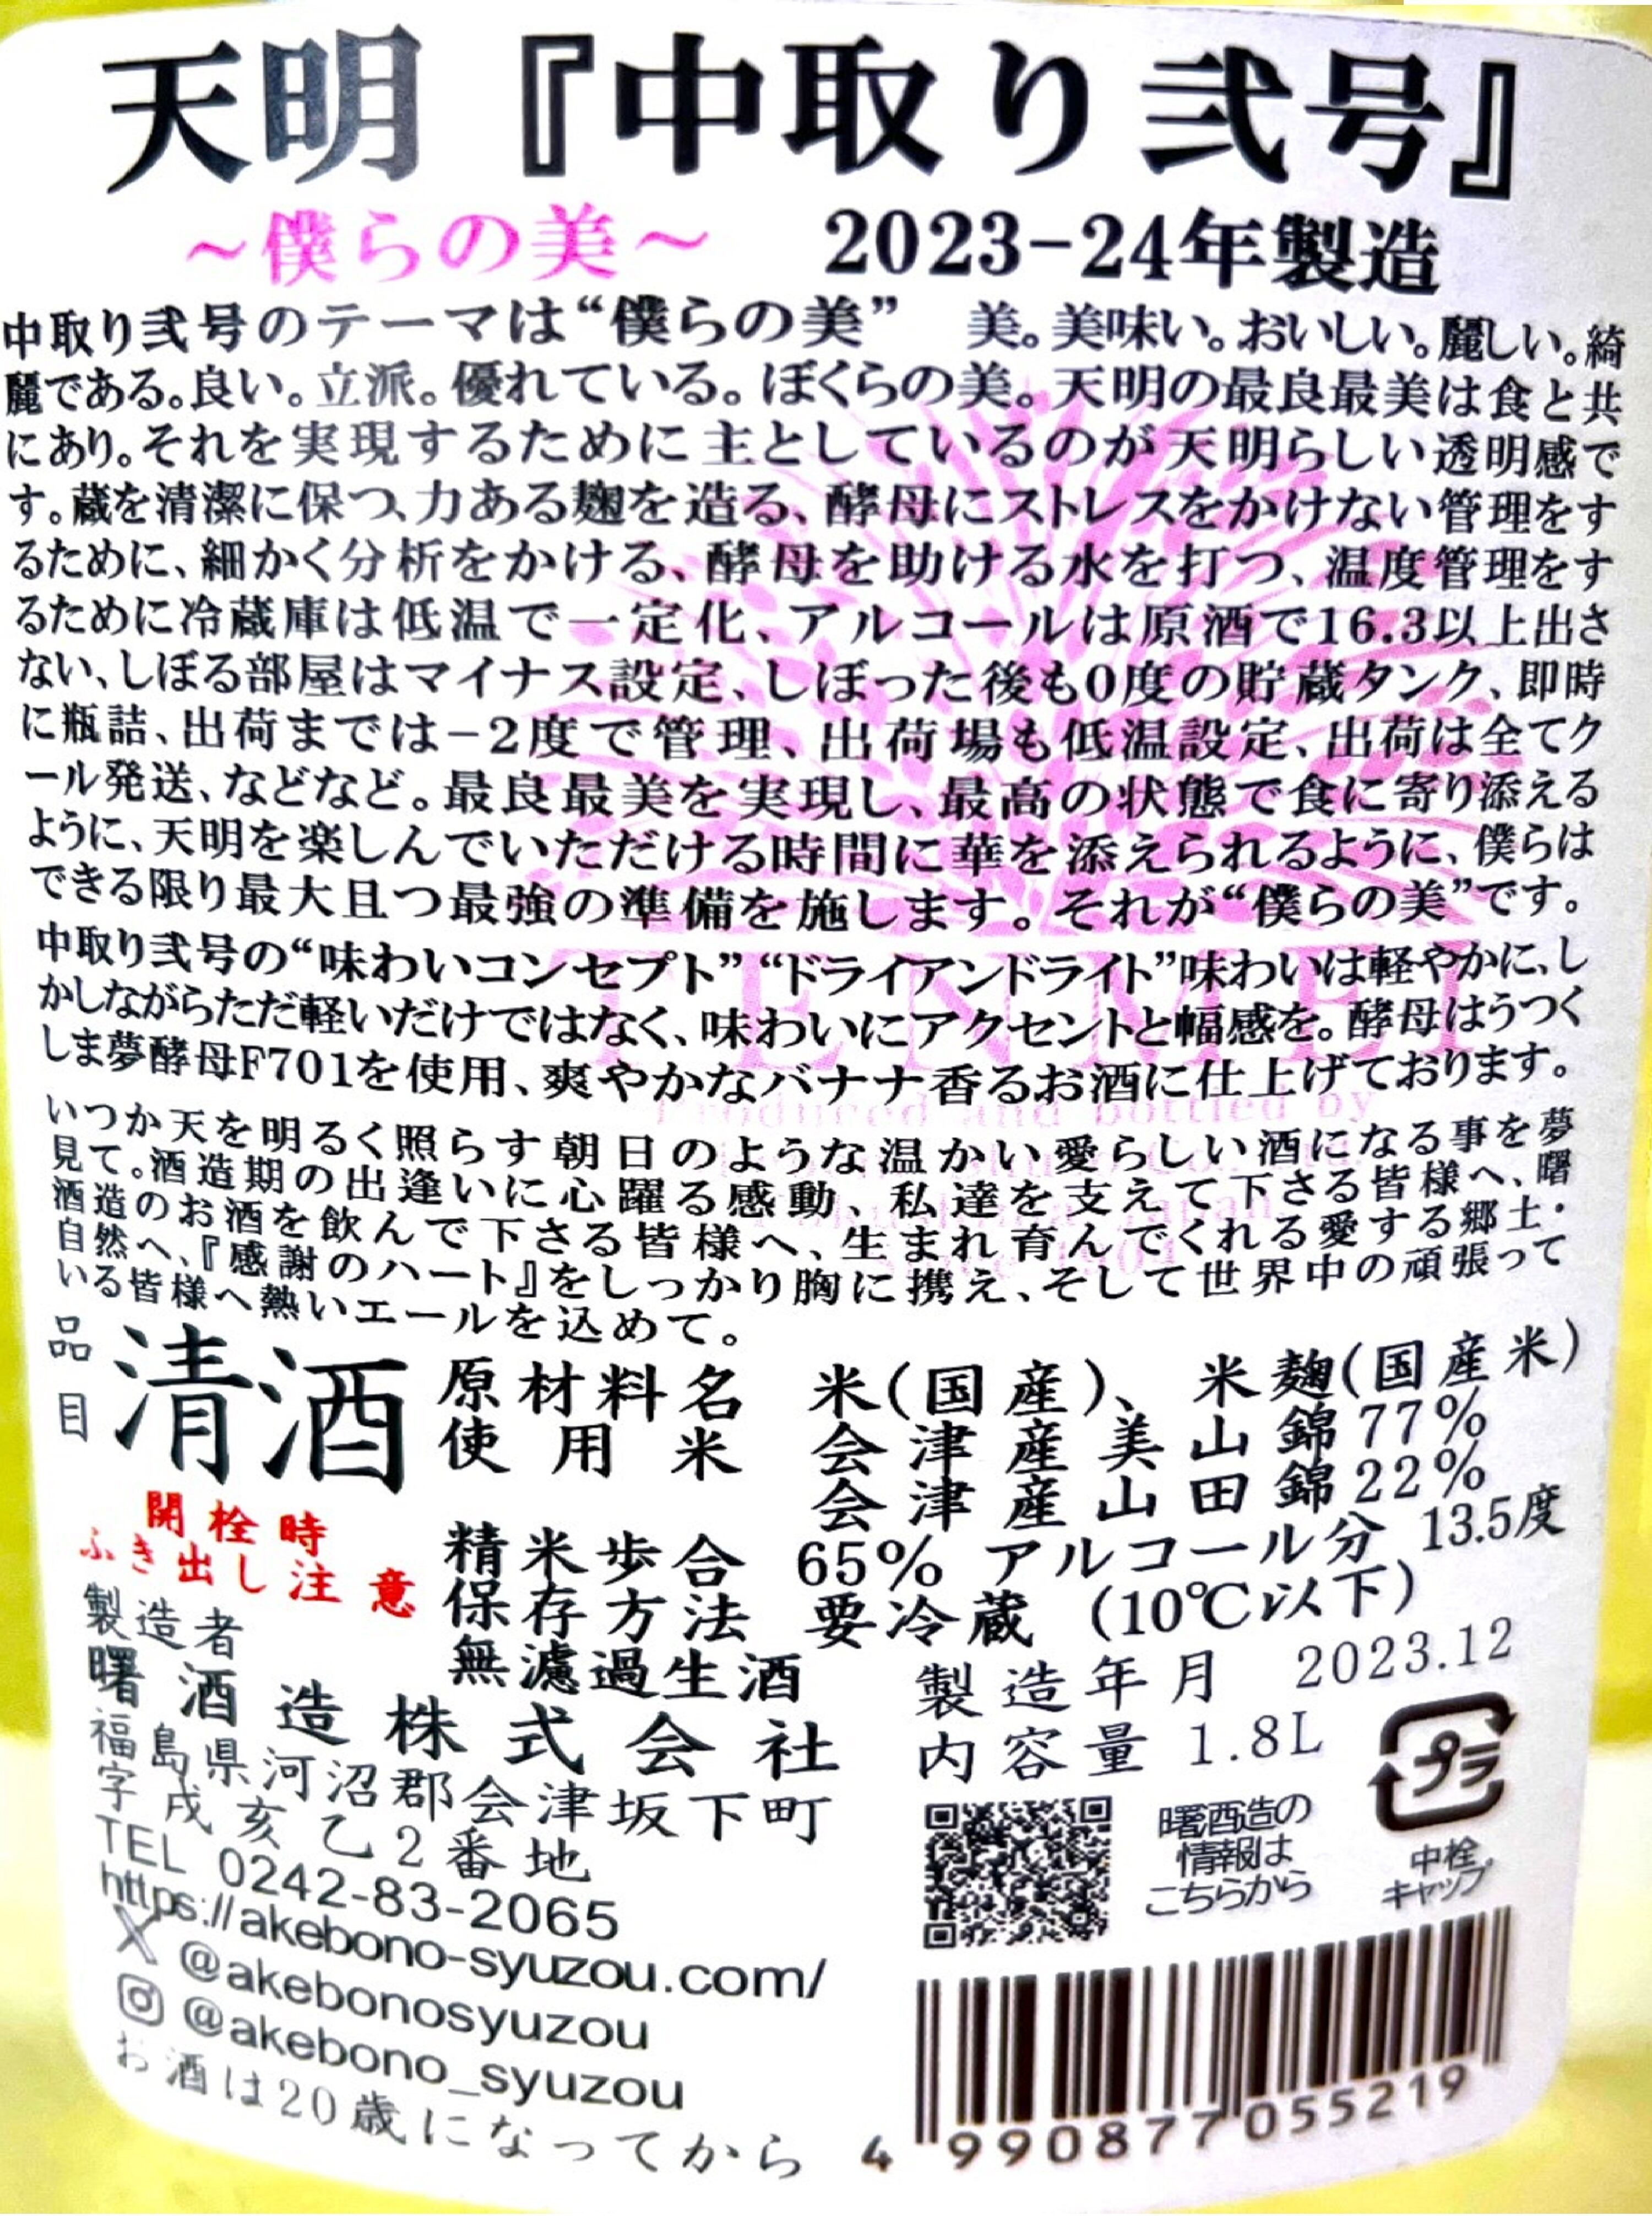 天明『中取り弐号』
~僕らの美~ 2023-24年製造
中取り弐号のテーマは“僕らの美” 美。美味い。おいしい。麗しい。綺
麗である。良い。立派。優れている。ぼくらの美。天明の最良最美は食と共
にあり。それを実現するために主としているのが天明らしい透明感で
す。蔵を清潔に保つ、力ある麹を造る、酵母にストレスをかけない管理をす
るために、細かく分析をかける、酵母を助ける水を打つ、温度管理をす
るために冷蔵庫は低温で一定化、アルコールは原酒で16.3以上出さ
ない、しぼる部屋はマイナス設定、しぼった後も0度の貯蔵タンク、即時
に瓶詰、出荷までは-2度で管理、出荷場も低温設定、出荷は全てク
ール発送、などなど。最良最美を実現し、最高の状態で食に寄り添える
ように、天明を楽しんでいただける時間に華を添えられるように、僕らは
できる限り最大且つ最強の準備を施します。それが“僕らの美”です。
中取り弐号の“味わいコンセプト”“ドライアンドライト”味わいは軽やかに、し
かしながらただ軽いだけではなく、味わいにアクセントと幅感を。酵母はうつく
しま夢酵母F701を使用、爽やかなバナナ香るお酒に仕上げております。
いつか天を明るく照らす朝日のような温かい愛らしい酒になる事を夢
見て。酒造期の出逢いに心躍る感動、私達を支えて下さる皆様へ、曙
酒造のお酒を飲んで下さる皆様へ、生まれ育んでくれる愛する郷土・
自然へ、『感謝のハート』をしっかり胸に携え、そして世界中の頑張って
いる皆様へ熱いエールを込めて。
品目 清酒
原材料名 米(国産)、米麹(国産米)
使用米 会津産美山錦77%
会津産山田錦22%
精米歩合 65% アルコール分 13.5度
保存方法 要冷蔵 (10℃以下)
無濾過生酒
開栓時
ふき出し注意
製造年月 2023.12
内容量 1.8L
製造者
曙酒造株式会社
福島県河沼郡会津坂下町
字戌亥乙2番地
TEL 0242-83-2065
https://akebono-syuzou.com/
X @akebonosyuzou
@akebono_syuzou
お酒は20歳になってから
曙酒造の
情報は
こちらから
プラ
中栓
キャップ
4 990877 055219
TENMEI
Produced and bottled by